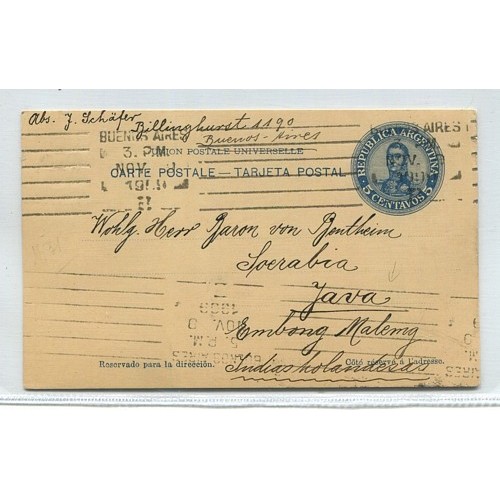 Abs. J. Schäfer
Billinghurst 1190
Buenos-Aires
BUENOS AIRES
3. P.M.
NOV.
UNION POSTALE UNIVERSELLE
CARTE POSTALE – TARJETA POSTAL
REPUBLICA ARGENTINA
5 CENTAVOS 5
AIRES
Wohlg. Herr Baron von Bentheim
Soerabia
Java
Embong Malemg
Indias holandesas
Reservado para la dirección.
Côté réservé à l'adresse.